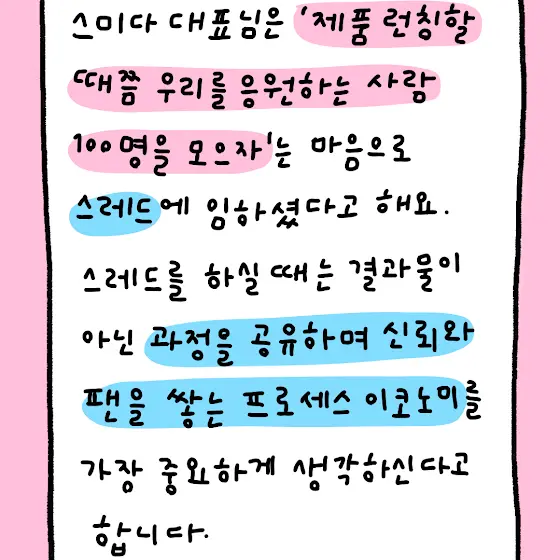 스미다 대표님은 '제품 런칭할
때쯤 우리를 응원하는 사람
100명을 모으자'는 마음으로
스레드에 임하셨다고 해요.
스레드를 하실 때는 결과물이
아닌 과정을 공유하며 신뢰와
팬을 쌓는 프로세스 이코노미를
가장 중요하게 생각하신다고
합니다.